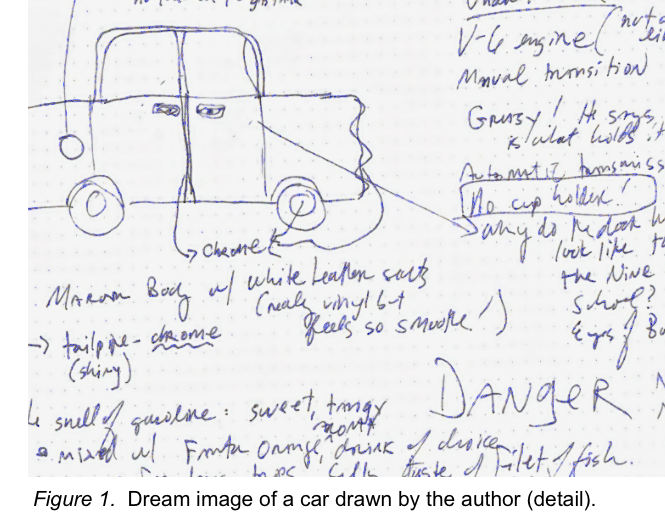 V-6 engine (not a
Manual transition
Greasy! He says,
is what holds it
Automatic transmiss
No cup holder!
Why do the door h
look like
the Nine
School?
Eyes of
Chrome
Maroon Body w/ white Leather seats
(really vinyl but
feels so smooth!)
→ tailpipe - chrome
(shiny)
DANGER
smell of gasoline: sweet, tangy
mixed w/ Fanta Orange, drink of choice
taste of Filet of fish.
Figure 1. Dream image of a car drawn by the author (detail).